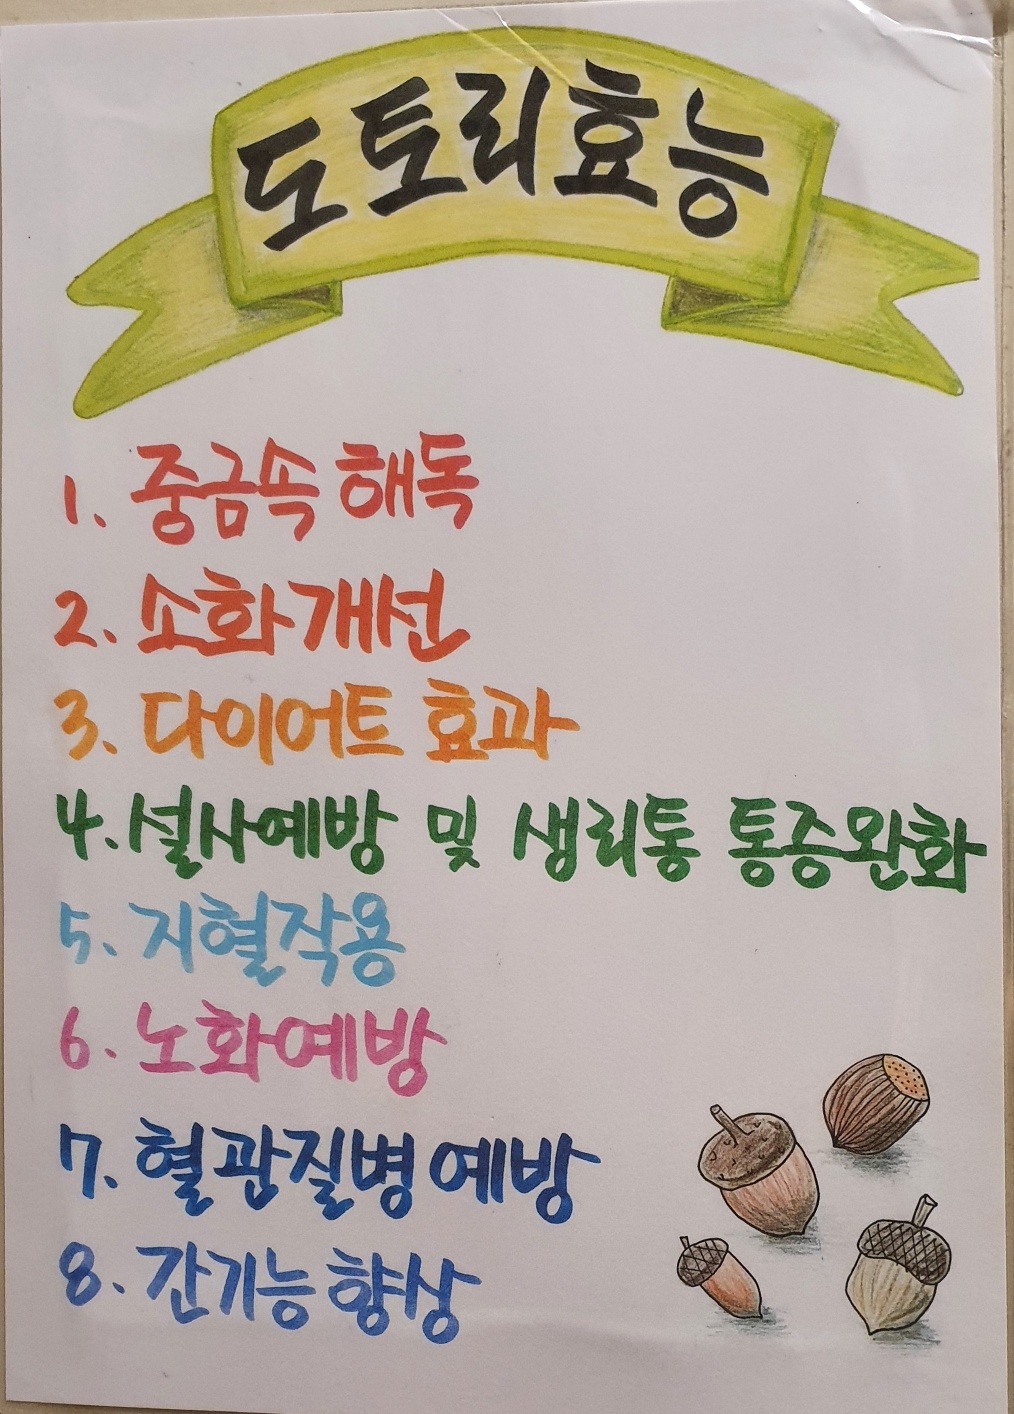 도토리효능
1. 중금속 해독
2. 소화개선
3. 다이어트 효과
4. 설사예방 및 생리통 통증완화
5. 지혈작용
6. 노화예방
7. 혈관질병 예방
8. 간기능 향상